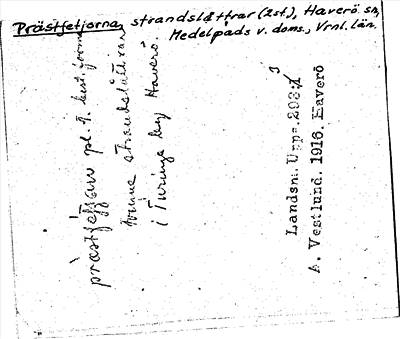 Prästfetjorna, strandslåttrar (2st), Haverö sn,
Medelpads v. doms., Vrnl. län.
prästfetjaṇ pl. 1. best. form
tvenne strandslåttrar
i Turinge by Haverö.
Landsm. Upps. 293:1 3
A. Vestlund. 1916. Haverö